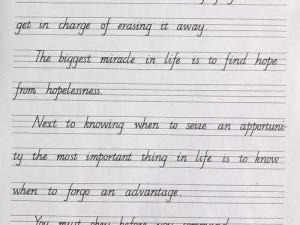 get in charge of erasing it away.
The biggest miracle in life is to find hope
from hopelessness.
Next to knowing when to seize an apportuni-
ty the most important thing in life is to know
when to forgo an advantage.
You must obey before you command